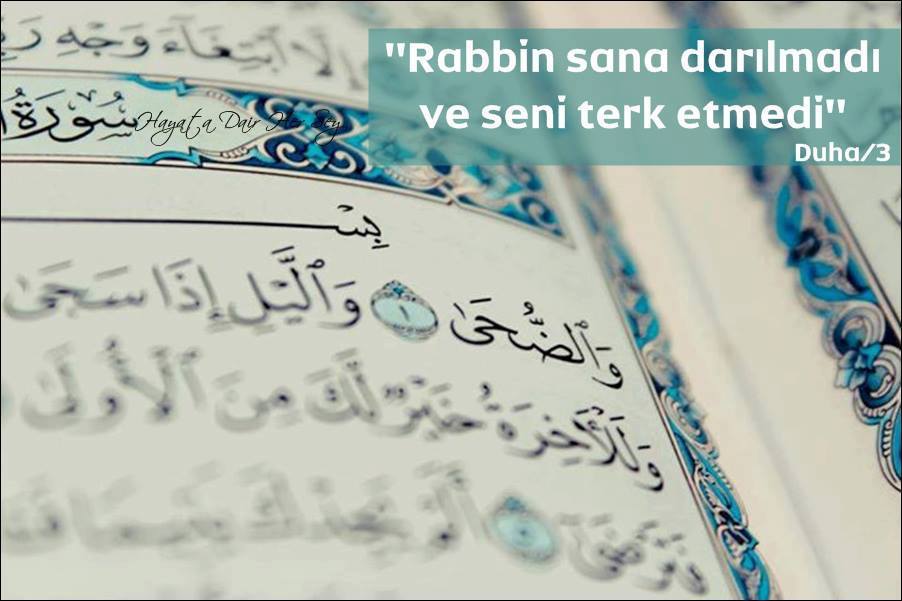 "Rabbin sana darılmadı
ve seni terk etmedi"
Duha/3
إِلَّا ٱبْتِغَآءَ وَجْهِ
سُورَةُ
Hayata Dair Her Şey
بِسْ
وَٱلضُّحَىٰ ١ وَٱلَّيْلِ إِذَا سَجَىٰ
وَلَلْءَاخِرَةُ خَيْرٌ لَّكَ مِنَ ٱلْأُولَىٰ
فَتَرْضَىٰٓ ٥ أَلَمْ يَجِدْكَ يَتِيمًا